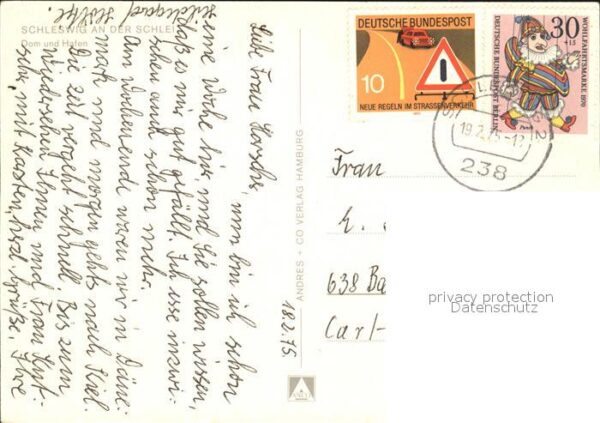 SCHLESWIG AN DER SCHLEI
Dom und Hafen
Liebe Frau Horschs, nun bin ich schon
eine Woche hier und Sie sollen wissen,
daß es mir gut gefällt. Ich esse inzwi-
schen auch schon mehr.
Am Wochenende waren wir in Däne-
mark und morgen gehts nach Kiel.
Die Zeit vergeht schnell. Bis zum
Wiedersehen Ihnen und Frau
sowie Kasten, herzl. Grüße, Ihre
Hildegard
18.2.75.
ANDRES + CO VERLAG HAMBURG
DEUTSCHE BUNDESPOST
10
NEUE REGELN IM STRASSENVERKEHR
30
+15
WOHLFAHRTSMARKE 1970
DEUTSCHE BUNDESPOST BERLIN
19.2.75-12
238
Frau
E.
638 Ba
Carl-
privacy protection
Datenschutz